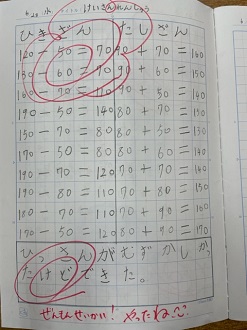 6/20 水 けいさんれんしゅう
ひきざん たしざん
120-50=70 90+70=160
130-60=70 90+60=150
170-70=100 70+70=140
190-50=140 80+90=170
150-70=80 80+70=150
170-50=120 80+80=160
190-70=120 70+70=140
190-80=110 70+80=150
180-70=110 70+90=160
160-50=110 80+90=170
ひっさんがむずかしか
たけどできた。
ぜんもんせいかい！ やったね